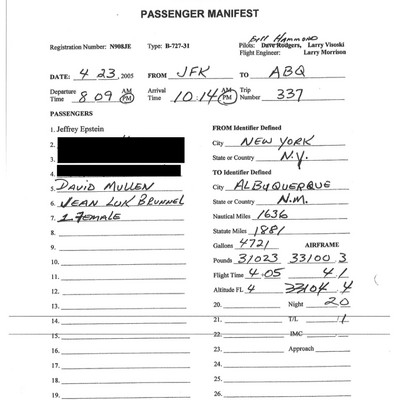 PASSENGER MANIFEST
Bill Hammond
Registration Number: N908JE Type: B-727-31 Pilots: Dave Rodgers, Larry Visoski
Flight Engineer: Larry Morrison
DATE: 4 23, 2005 FROM JFK TO ABQ
Departure Time 8 09 AM PM Arrival Time 10:14 AM PM Trip Number 337
PASSENGERS
1. Jeffrey Epstein FROM Identifier Defined
2. City NEW YORK
3. State or Country N.Y.
4. TO Identifier Defined
5. DAVID MULLEN City ALBUQUERQUE
6. JEAN LUK BRUNNEL State or Country N.M.
7. 1 FEMALE Nautical Miles 1636
8. Statute Miles 1881
9. Gallons 4721 AIRFRAME
10. Pounds 31023 33100 3
11. Flight Time 4:05 4 1
12. Altitude FL 4 33104 4
13. 20. Night 20
14. 21. T/L 1
15. 22. IMC
16. 23. Approach
17. 24.
18. 25.
19. 26.